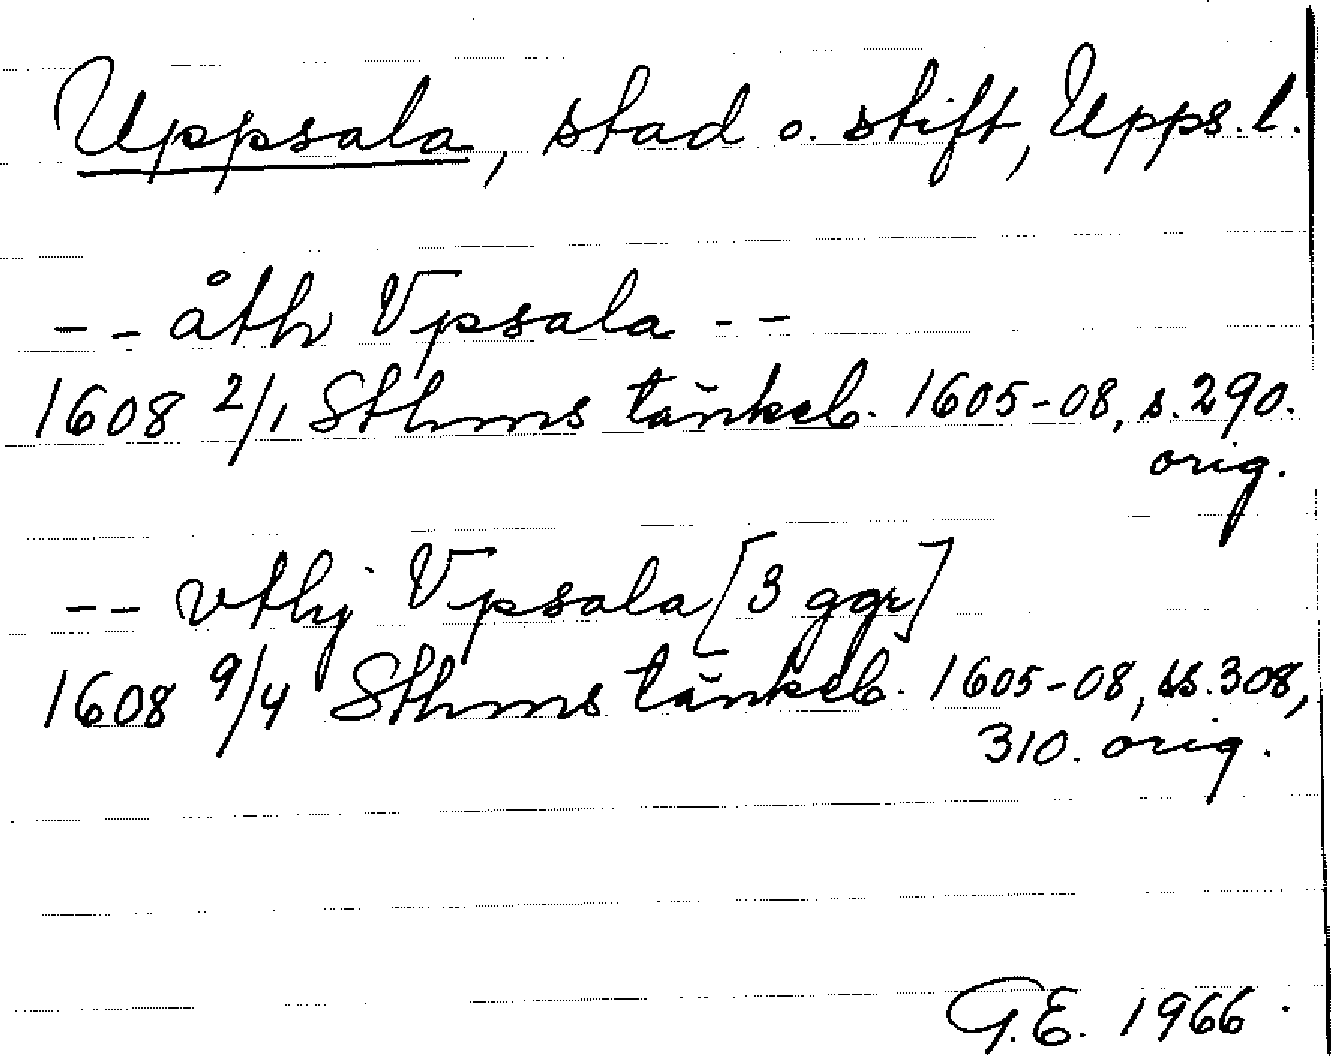 Uppsala, stad o. stift, Upps. l.
-- åth Vpsala --
1608 2/1 Sthms tänkeb. 1605-08, s. 290.
orig.
-- vthj Vpsala [3 ggr]
1608 9/4 Sthms tänkeb. 1605-08, ss. 308,
310. orig.
G.E. 1966.